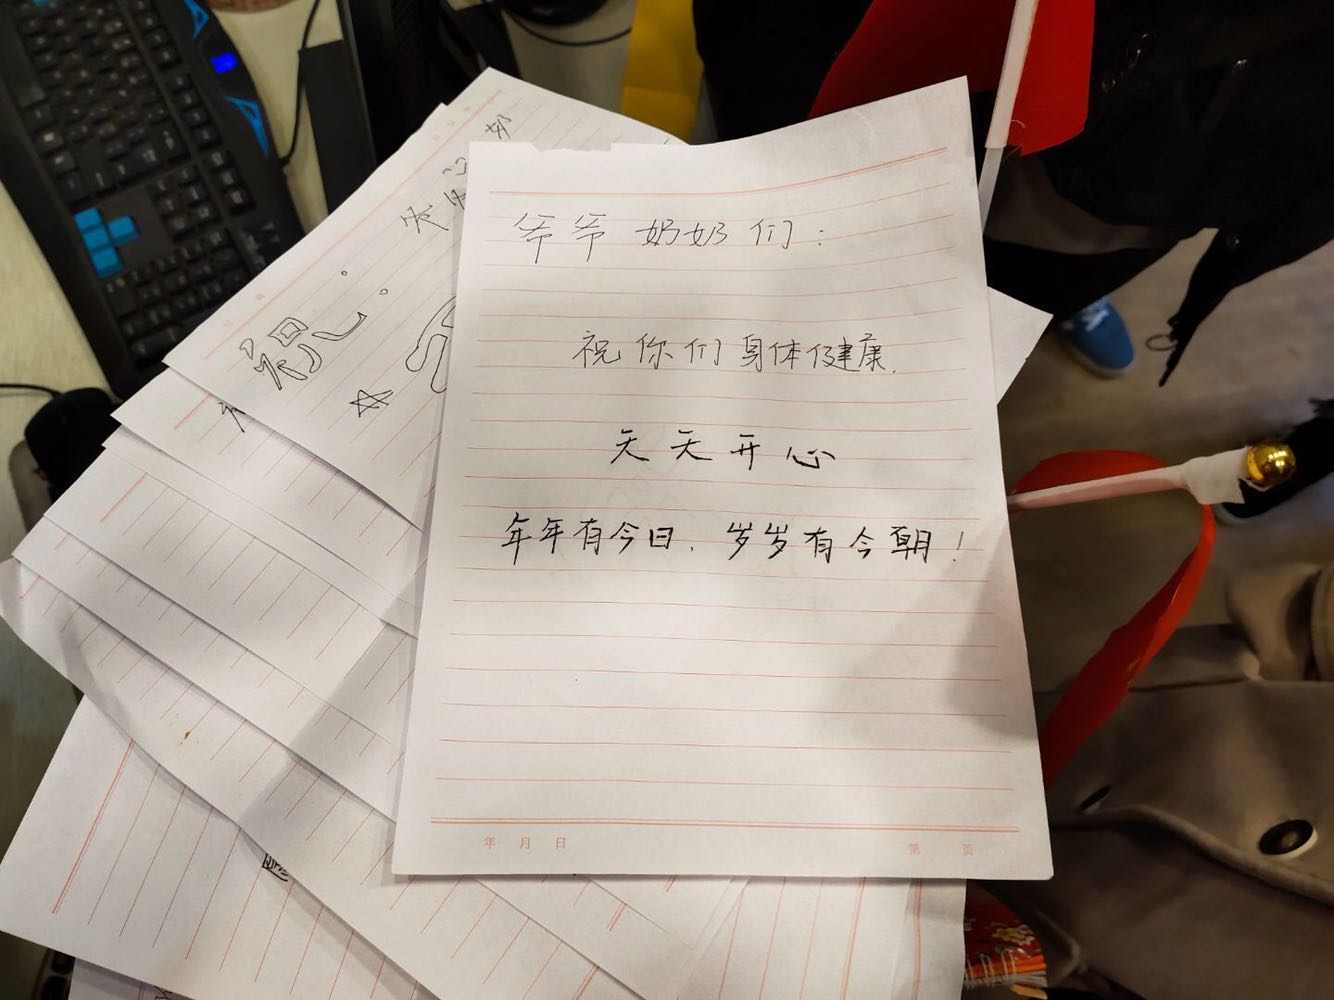 爷爷奶奶们：
祝你们身体健康.
天天开心
年年有今日、岁岁有今朝！
年 月 日
第 页
祝：